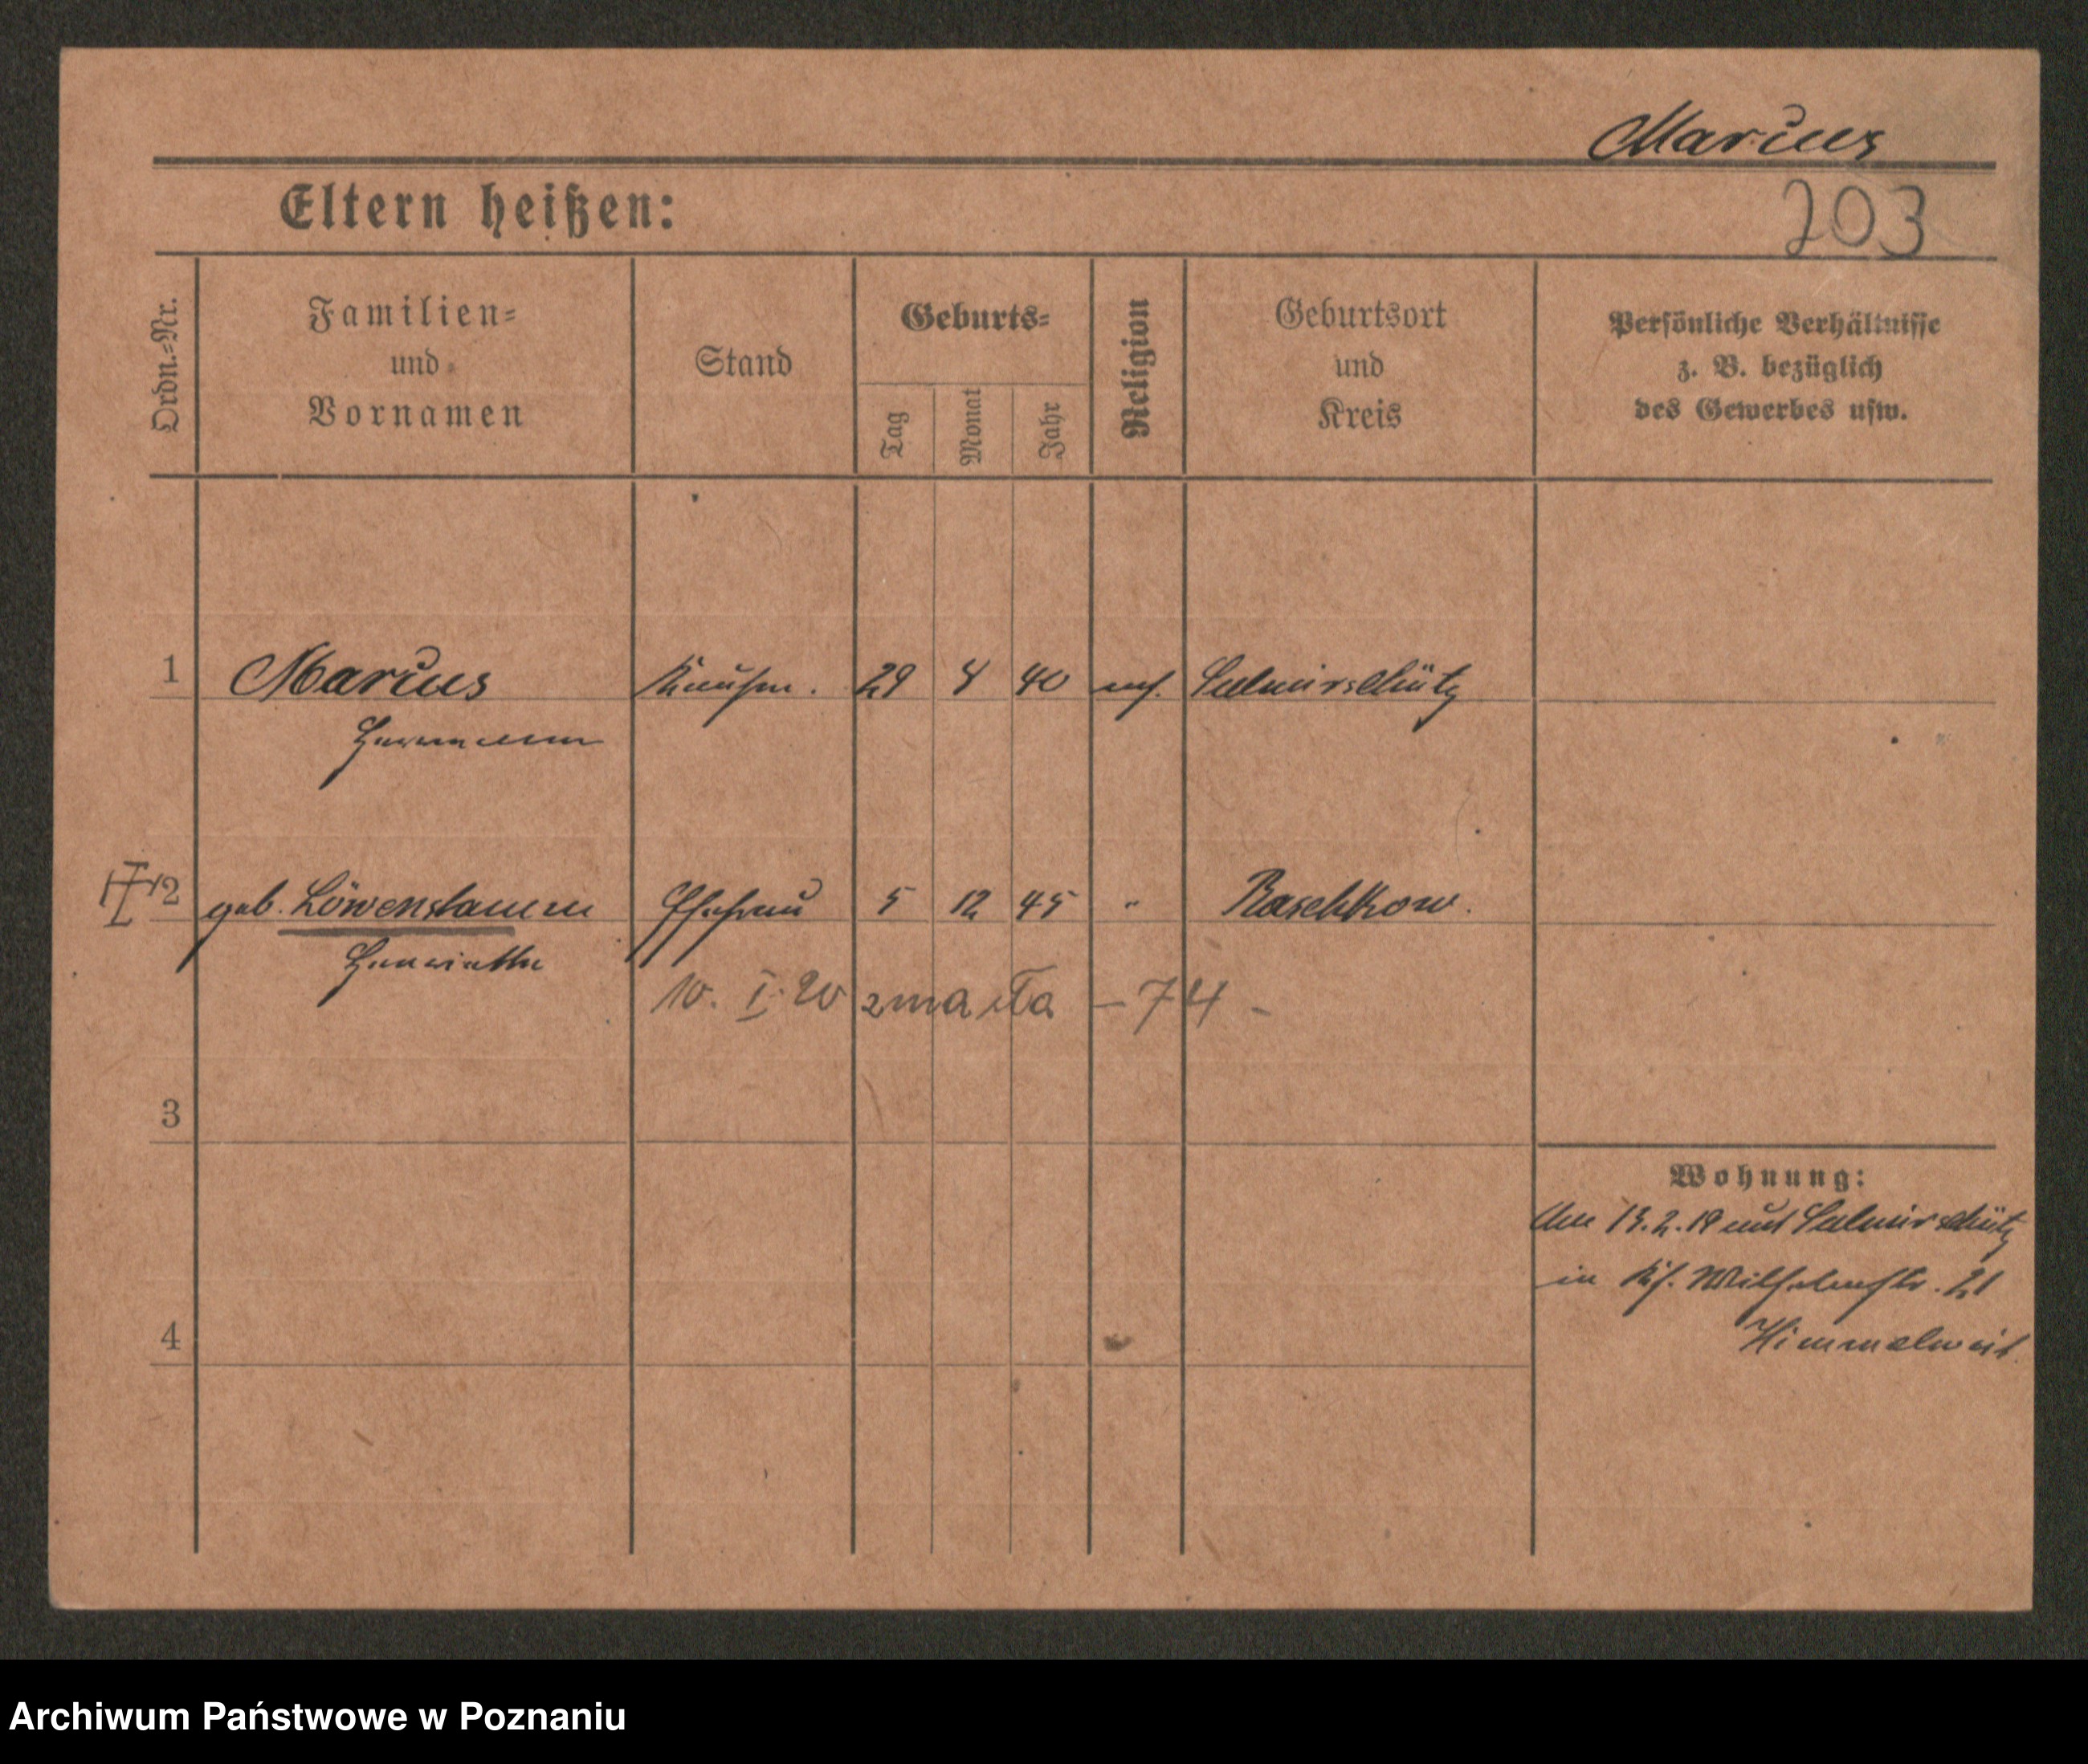 Marcus
Eltern heißen:
203
Ordn.-Nr.
Familien-
und
Vornamen
Stand
Geburts-
Tag
Monat
Jahr
Religion
Geburtsort
und
Kreis
Persönliche Verhältnisse
z. B. bezüglich
des Gewerbes usw.
1 Marcus Kaufm. 29 4 40 mos. Sulmirschütz
Hermann
2 geb. Löwenstamm Ehefrau 5 12 45 " Raschkow.
Henriette
10. I. 20 zmarła – 74 –
3
Wohnung:
13.2.19 aus Sulmirschütz
4
in Wilhelmstr. 21
Himmelweit
Archiwum Państwowe w Poznaniu